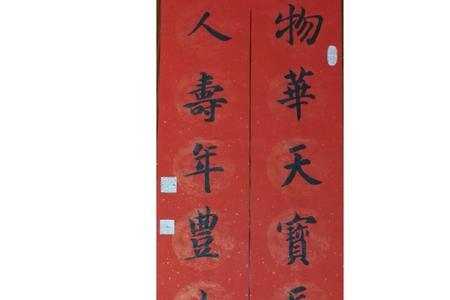 物華天寶
人壽年豐